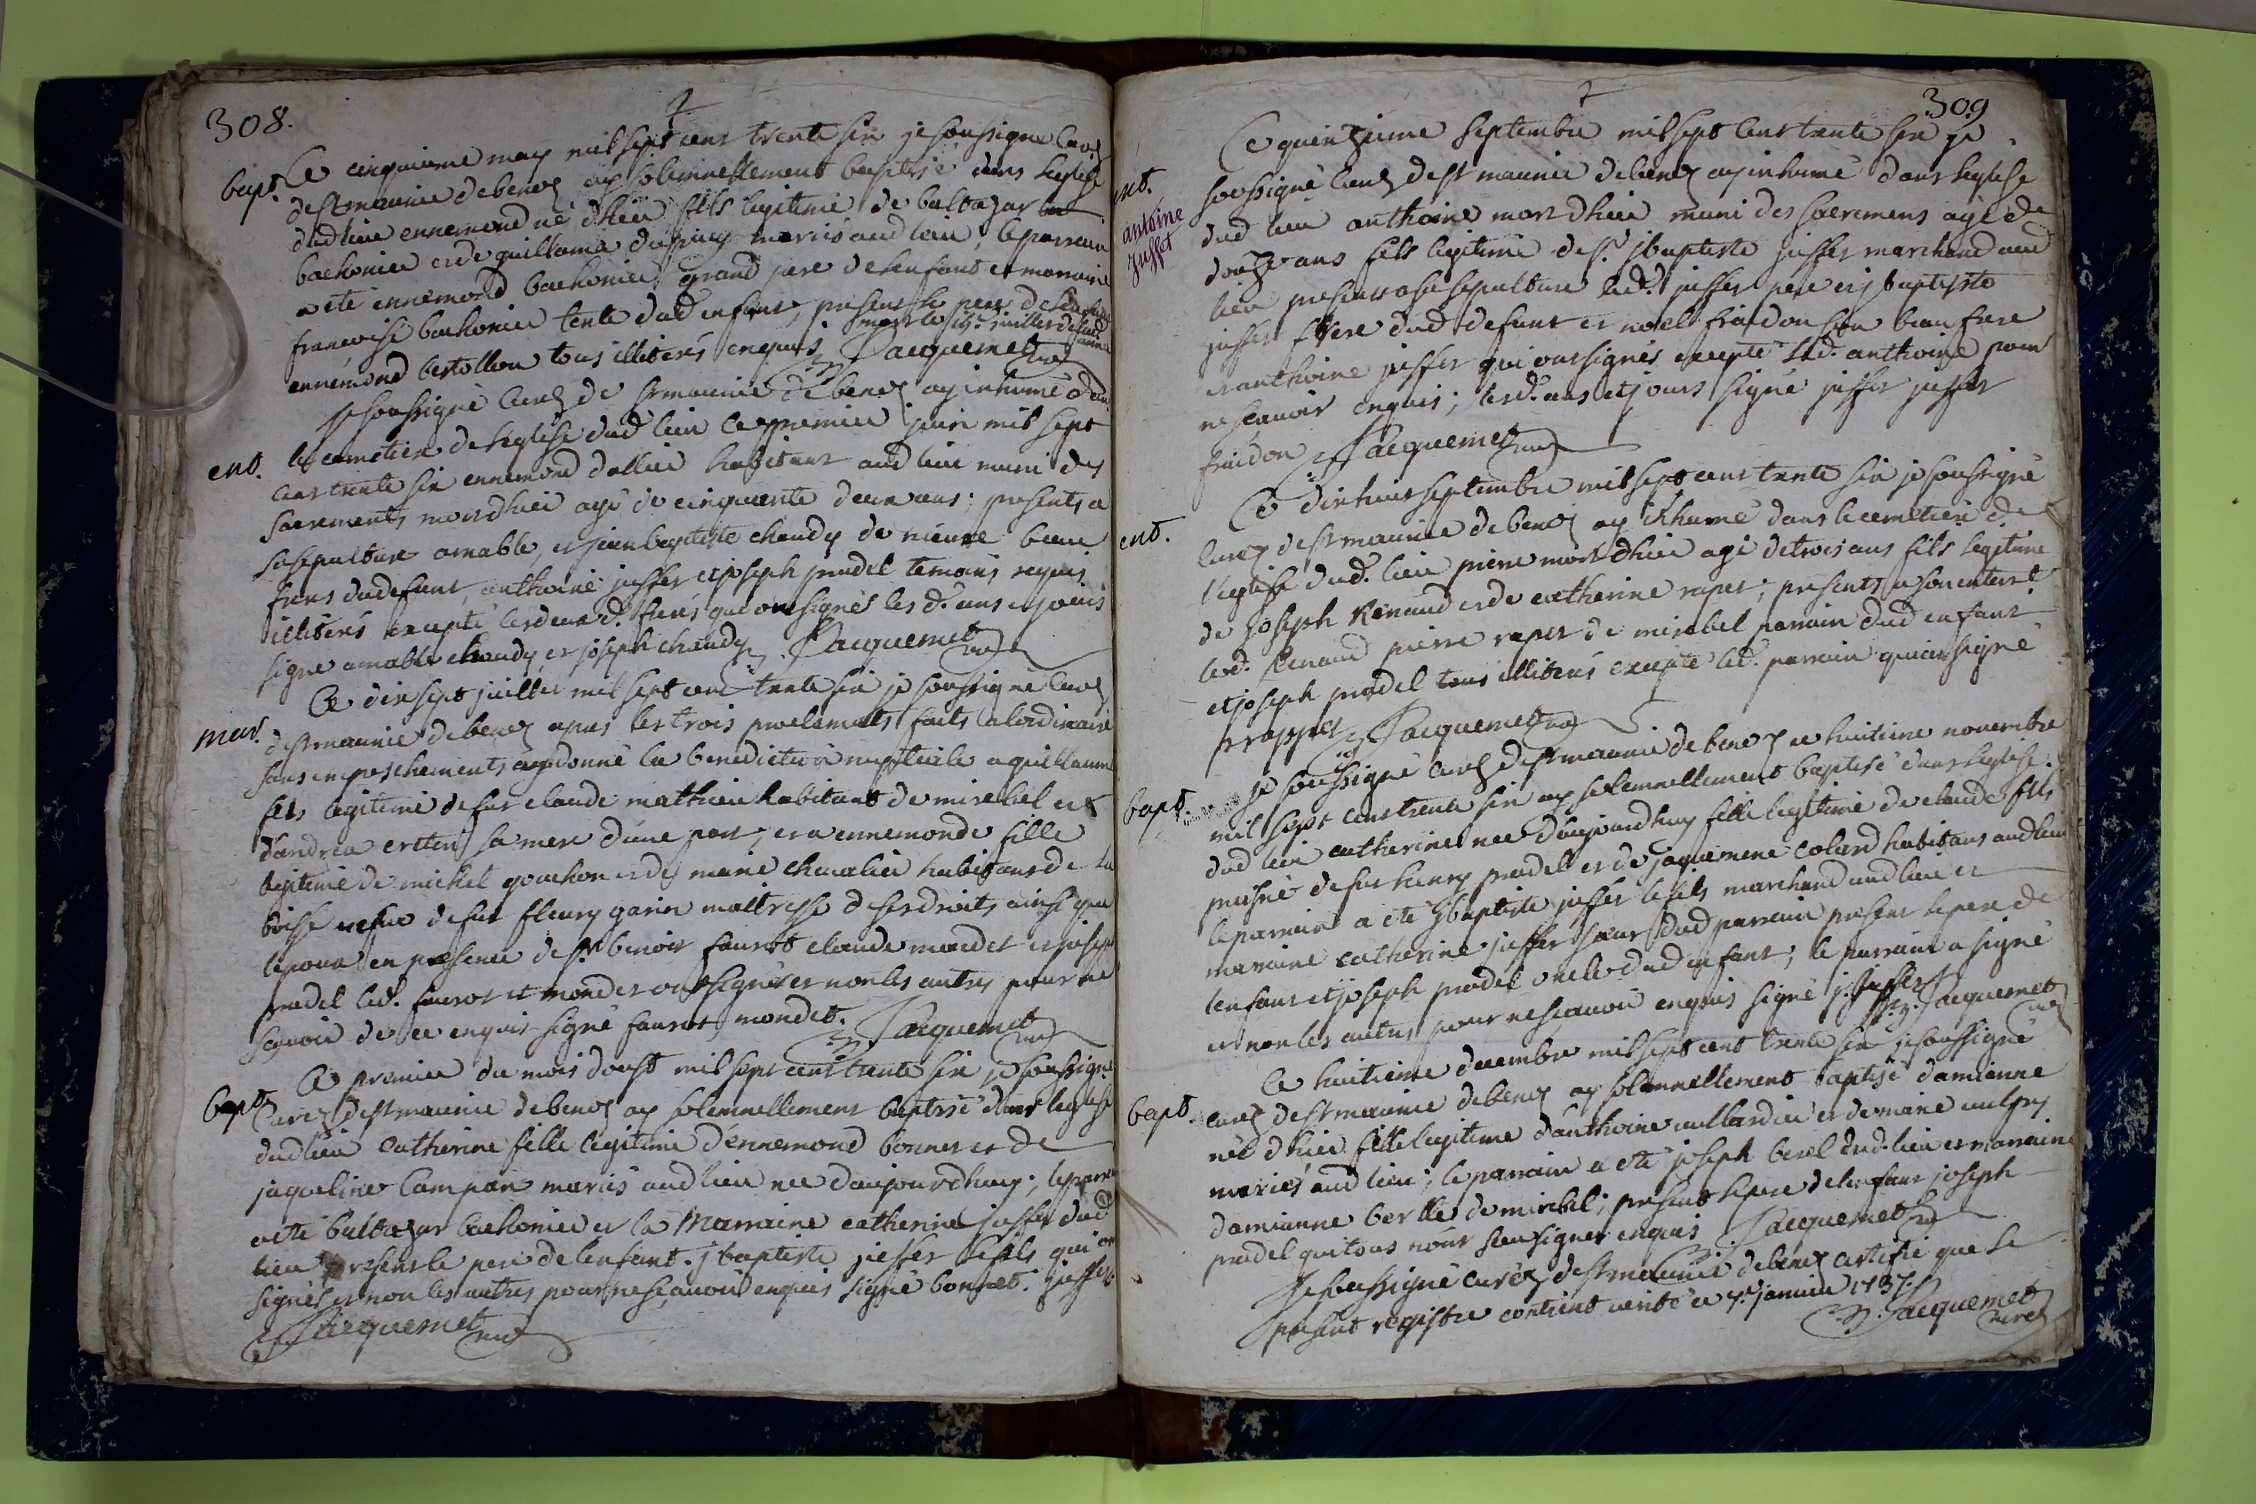 308.
bapt. Ce cinquieme may mil sept cent trente six je soussigné Curé
de St maurice de benoz ay solemnellement baptisé dans leglise
dud lieu ennemond né d'hier fils legitime de baltazar
bachonier et de guillauma dupuy mariés aud lieu, le parrain
a été ennemond bachonier grand pere de lenfant et marraine
francoise bachonier tente dud enfant, present le pere de lenfant
ennemond bertollon tous illiterés enquis Jacquemet curé
mort le juillet de lad année
Je soussigné Curé de St maurice de benoz ay inhumé dans
ent. le cemetiere de leglise dud lieu ce premier juin mil sept
cent trente six ennemond dallier habitant aud lieu muni des
sacrements mort dhier agé de cinquante deux ans; presents a
sa sepulture amable, et jean baptiste chaudy de beau
freres du defunt, anthoine juffet et joseph pradel temoins requis
illiterés excepté les deux d. freres qui ont signés les d. ans et jours
signé amable chaudy, et joseph chaudy. Jacquemet curé
mar. Ce dix sept juillet mil sept cent trente six je soussigné Curé
de St maurice de benoz apres les trois proclamats faits a lordinaire
sans empeschements ay donné la benediction nuptiale a guillaume
fils legitime de fut claude mathieu habitant de mirebel et
dandrea sa mere d'une part, et a ennemonde fille
legitime de michel gonchon et de marie chevalier habitans de la
boisse vefve de fut fleury garin maitresse de ses droits ainsi que
lepoux en presence de Sr benoit faurot claude mondet et joseph
pradel led. faurot et mondet ont signés et non les autres pour ne
scavoir de ce enquis signé faurot, mondet. Jacquemet curé
bapt. Ce premier du mois doust mil sept cent trente six je soussigné
Curé de St maurice de benoz ay solemnellement baptisé dans leglise
dud lieu Catherine fille legitime d'ennemond bonnet et de
jaqueline Campan mariés aud lieu nee daujourdhuy; le parrain
a été baltazar bachonier et la Marraine catherine juffet dud
lieu present le pere de lenfant. j baptiste juffet le fils qui ont
signés et non les autres pour ne scavoir enquis signé bonnet. juffet
Jacquemet curé
309
Ce quinzieme septembre mil sept cent trente six je
ent. soussigné Curé de St maurice de benoz ay inhumé dans leglise
antoine juffet
dud lieu anthoine mort dhier muni des sacremens agé de
douze ans fils legitime de Sr jbaptiste juffet marchand aud
lieu presens a sa sepulture led. juffet pere et j baptiste
juffet frere dud defunt et noel fraidon son beau frere
et anthoine juffet qui ont signés excepté led. anthoine pour
ne scavoir enquis; les d. ans et jours signé juffet juffet
fraidon Jacquemet curé
Ce dix huit septembre mil sept cent trente six je soussigné
ent. Curé de St maurice de benoz ay inhumé dans le cemetiere de
l'eglise dud. lieu pierre mort dhier agé de trois ans fils legitime
de Joseph Renaud et de catherine rapet; presents a son enterrt
led. Renaud pierre rapet de mirebel parrain dud enfant
et joseph pradel tous illiterés excepté led. parrain qui a signé
p rappet Jacquemet curé
Je soussigné Curé de St maurice de benoz ce huitieme novembre
bapt. mil sept cent trente six ay solemnellement baptisé dans leglise
dud lieu catherine nee daujourdhuy fille legitime de claude fils
puisné de fut henry pradel et de jaquemine colard habitans aud lieu
le parrain a été jbaptiste juffet le fils marchand aud lieu et
marraine catherine juffet soeur dud parrain present le pere de
lenfant et joseph pradel oncle dud enfant; le parrain a signé
et non les autres pour ne scavoir enquis signé j. juffet Jacquemet curé
Ce huitieme decembre mil sept cent trente six je soussigné
bapt. curé de St maurice de benoz ay solemnellement baptisé damianne
née dhier fille legitime danthoine et de marie
mariés aud lieu; le parrain a été joseph berel dud. lieu et marraine
damianne berlle de mirebel; present le pere de lenfant joseph
pradel qui tous n'ont sceu signer enquis Jacquemet curé
Je soussigné curé de St maurice de benoz certifie que le
present registre contient verité ce 7e janvier 1737.
Jacquemet curé